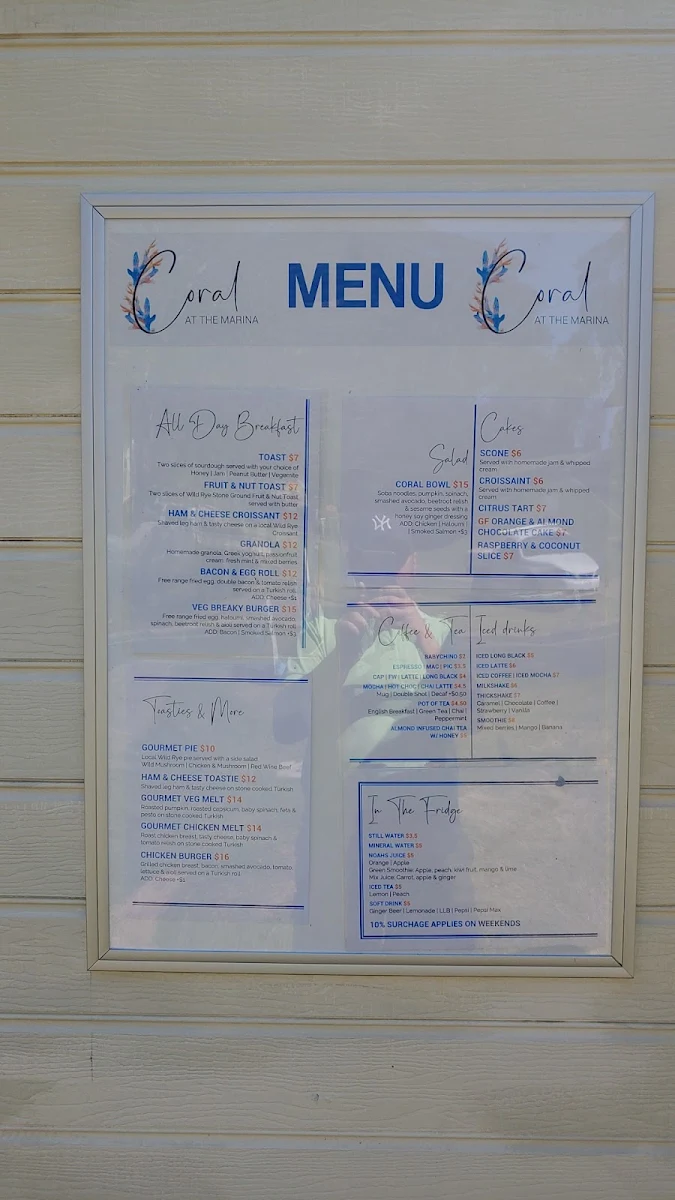 Coral
AT THE MARINA
MENU
Coral
AT THE MARINA
All Day Breakfast
TOAST $7
Two slices of sourdough served with your choice of
Honey | Jam | Peanut Butter | Vegemite
FRUIT & NUT TOAST $7
Two slices of Wild Rye Stone Ground Fruit & Nut Toast
served with butter
HAM & CHEESE CROISSANT $12
Shaved leg ham & tasty cheese on a local Wild Rye
Croissant
GRANOLA $12
Homemade granola, Greek yoghurt, passionfruit
cream, fresh mint & mixed berries
BACON & EGG ROLL $12
Free range fried egg, double bacon & tomato relish
served on a Turkish roll
ADD: Cheese +$1
VEG BREAKY BURGER $15
Free range fried egg, haloumi, smashed avocado,
spinach, beetroot relish & aioli served on a Turkish roll
ADD: Bacon | Smoked Salmon +$3
Toasties & More
GOURMET PIE $10
Local Wild Rye pie served with a side salad
Wild Mushroom | Chicken & Mushroom | Red Wine Beef
HAM & CHEESE TOASTIE $12
Shaved leg ham & tasty cheese on stone cooked Turkish
GOURMET VEG MELT $14
Roasted pumpkin, roasted capsicum, baby spinach, feta &
pesto on stone cooked Turkish
GOURMET CHICKEN MELT $14
Roast chicken breast, tasty cheese, baby spinach &
tomato relish on stone cooked Turkish
CHICKEN BURGER $16
Grilled chicken breast, bacon, smashed avocado, tomato,
lettuce & aioli served on a Turkish roll
ADD: Cheese +$1
Salad
CORAL BOWL $15
Soba noodles, pumpkin, spinach,
smashed avocado, beetroot relish
& sesame seeds with a
honey soy ginger dressing
ADD: Chicken | Haloumi
| Smoked Salmon +$3
Cakes
SCONE $6
Served with homemade jam & whipped
cream
CROISSAINT $6
Served with homemade jam & whipped
cream
CITRUS TART $7
GF ORANGE & ALMOND
CHOCOLATE CAKE $7
RASPBERRY & COCONUT
SLICE $7
Coffee & Tea
BABYCHINO $2
ESPRESSO | MAC | PIC $3.5
CAP | FW | LATTE | LONG BLACK $4
MOCHA | HOT CHOC | CHAI LATTE $4.5
Mug | Double Shot | Decaf +$0.50
POT OF TEA $4.50
English Breakfast | Green Tea | Chai |
Peppermint
ALMOND INFUSED CHAI TEA
W/ HONEY
Iced drinks
ICED LONG BLACK
ICED LATTE $6
ICED COFFEE | ICED MOCHA $7
MILKSHAKE $6
THICKSHAKE $7
Caramel | Chocolate | Coffee |
Strawberry | Vanilla
SMOOTHIE
Mixed berries | Mango | Banana
In The Fridge
STILL WATER $3.5
MINERAL WATER $5
NOAHS JUICE $5
Orange | Apple
Green Smoothie: Apple, peach, kiwi fruit, mango & lime
Mix Juice: Carrot, apple & ginger
ICED TEA $5
Lemon | Peach
SOFT DRINK $5
Ginger Beer | Lemonade | LLB | Pepsi | Pepsi Max
10% SURCHAGE APPLIES ON WEEKENDS